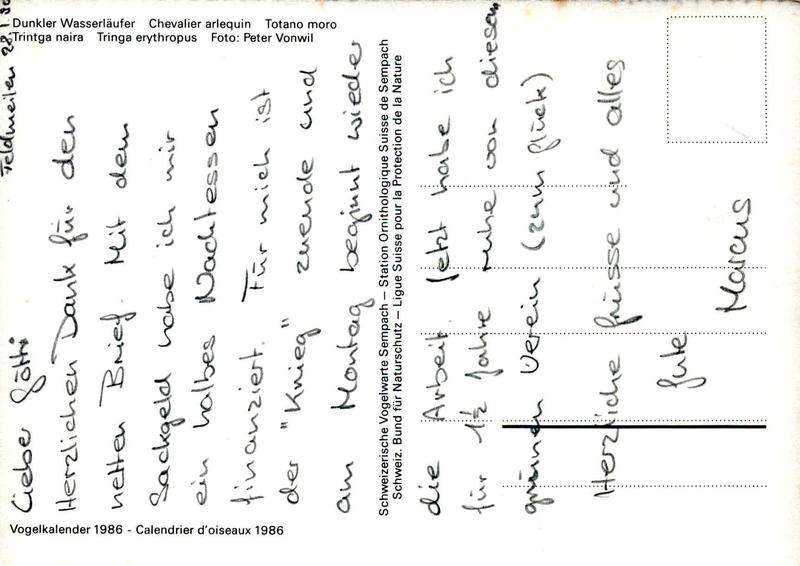 Dunkler Wasserläufer Chevalier arlequin Totano moro
Trintga naira Tringa erythropus Foto: Peter Vonwil
Feldmeilen 28.1.
Liebe Götti
Herzlichen Dank für den
netten Brief. Mit dem
Sackgeld habe ich mir
ein halbes Nachtessen
finanziert. Für mich ist
der "Krieg" zuende und
am Montag beginnt wieder
Schweizerische Vogelwarte Sempach – Station Ornithologique Suisse de Sempach
Schweiz. Bund für Naturschutz – Ligue Suisse pour la Protection de la Nature
die Arbeit. Jetzt habe ich
für 1½ Jahre ruhe von diesem
grünen Verein (zum glück)
Herzliche grüsse und alles
gute
Marcus
Vogelkalender 1986 - Calendrier d'oiseaux 1986